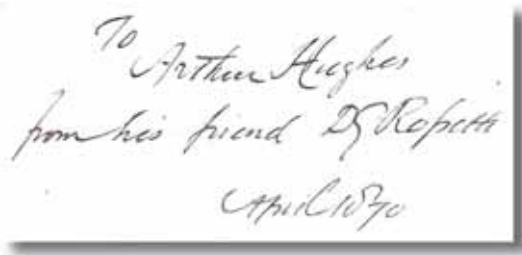 To
Arthur Hughes
from his friend DG Rossetti
April 1870